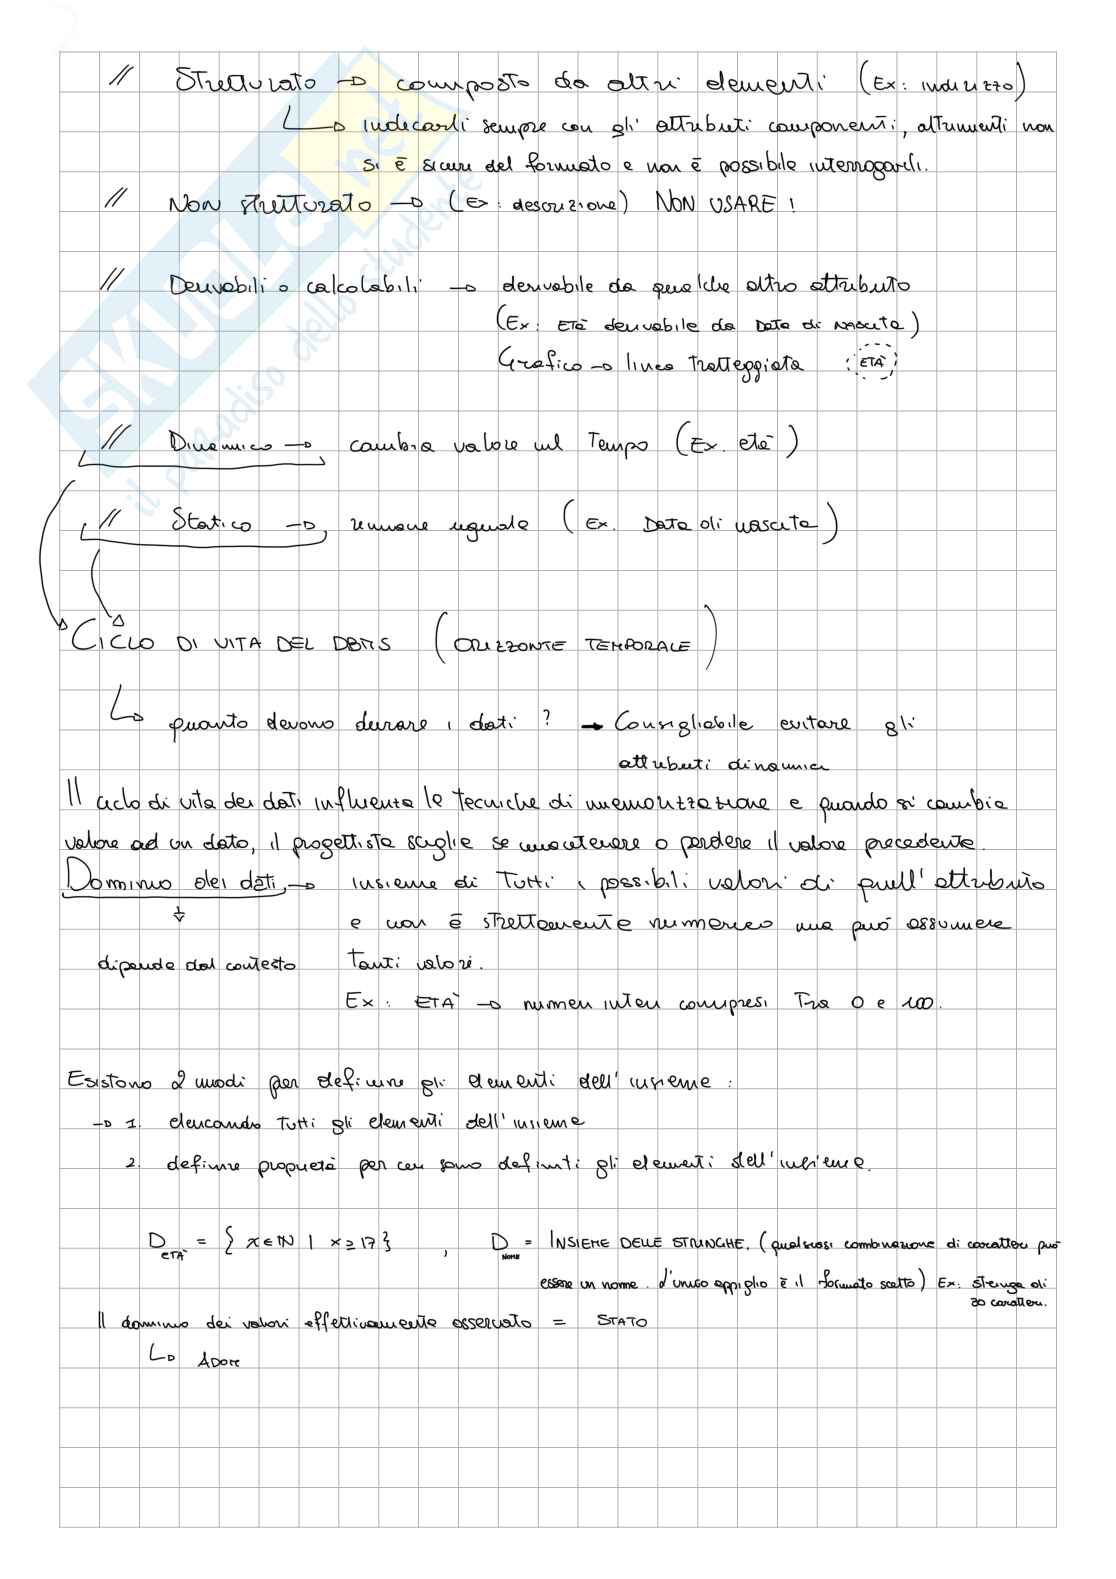 // Strutturato → composto da altri elementi (Ex: indirizzo)
↳ indicarli sempre con gli attributi componenti, altrimenti non
si è sicuri del formato e non è possibile interrogarli.
// Non strutturato → (Ex: descrizione) NON USARE!
// Derivabili o calcolabili → derivabile da qualche altro attributo
(Ex: Età derivabile da Data di nascita)
Grafico → linea tratteggiata ETÀ
// Dinamico → cambia valore nel tempo (Ex. età)
// Statico → rimane uguale (Ex. Data di nascita)
CICLO DI VITA DEL DBMS (ORIZZONTE TEMPORALE)
↳ quanto devono durare i dati? → Consigliabile evitare gli
attributi dinamici
Il ciclo di vita dei dati influenza le tecniche di memorizzazione e quando si cambia
valore ad un dato, il progettista sceglie se mantenere o perdere il valore precedente.
Dominio dei dati → insieme di tutti i possibili valori di quell'attributo
e non è strettamente numerico ma può assumere
dipende dal contesto tanti valori.
Ex: ETÀ → numeri interi compresi tra 0 e 100.
Esistono 2 modi per definire gli elementi dell'insieme:
→ 1. elencando tutti gli elementi dell'insieme
2. definire proprietà per cui sono definiti gli elementi dell'insieme.
D ETÀ = { x ∈ ℕ | x ≥ 17 } , D NOME = INSIEME DELLE STRINGHE. (qualsiasi combinazione di caratteri può
essere un nome. L'unico appiglio è il formato scelto) Ex: stringa di
30 caratteri.
Il dominio dei valori effettivamente osservato = STATO
↳
SKUOLA.net
il paradiso dello studente